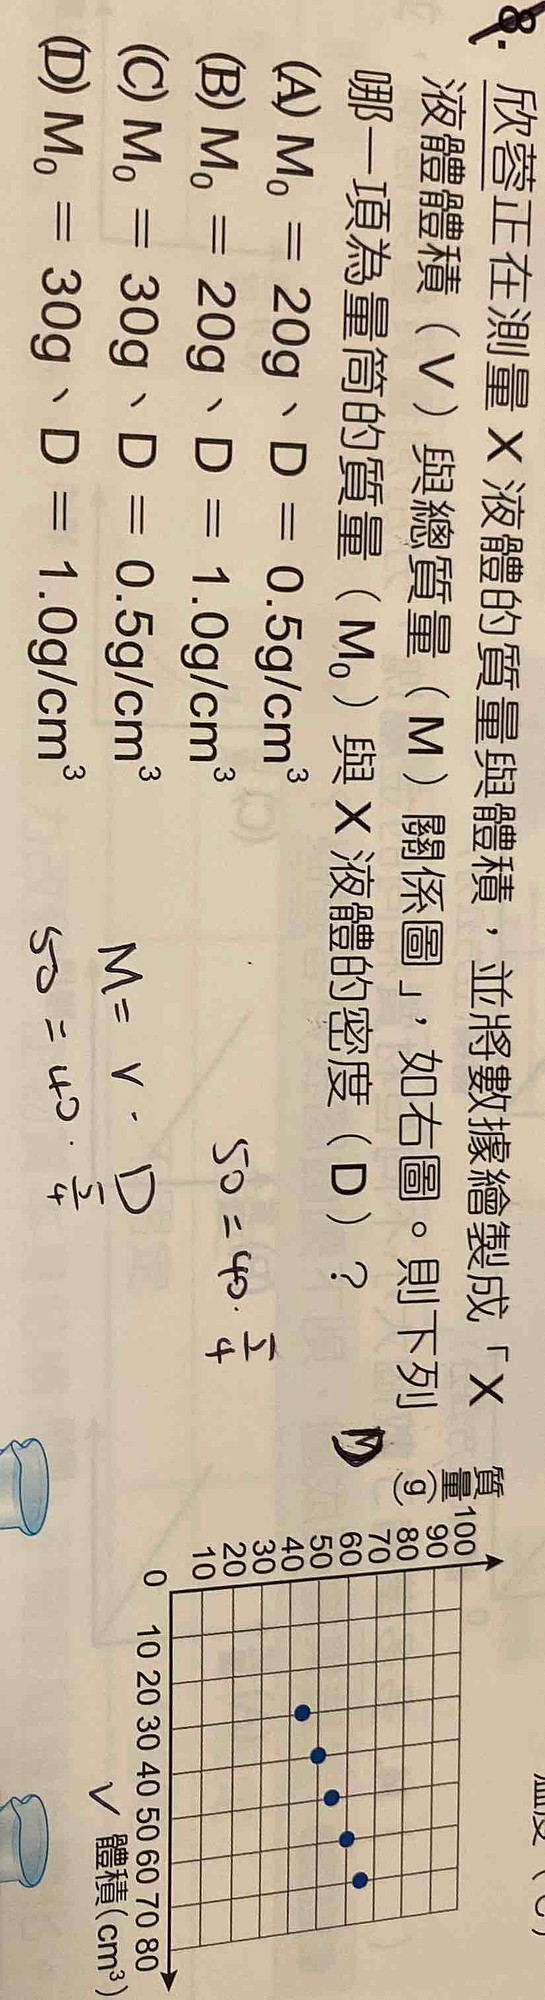 8. 欣蓉正在測量 X 液體的質量與體積，並將數據繪製成「X
液體體積（V）與總質量（M）關係圖」，如右圖。則下列
哪一項為量筒的質量（M₀）與 X 液體的密度（D）？
(A) M₀ = 20g、D = 0.5g/cm³
(B) M₀ = 20g、D = 1.0g/cm³
(C) M₀ = 30g、D = 0.5g/cm³
(D) M₀ = 30g、D = 1.0g/cm³
50 = 40 · 5/4
M = V · D
50 = 40 · 5/4
質量(g)
100
90
80
70
60
50
40
30
20
10
0
10 20 30 40 50 60 70 80
V 體積(cm³)
溫度（